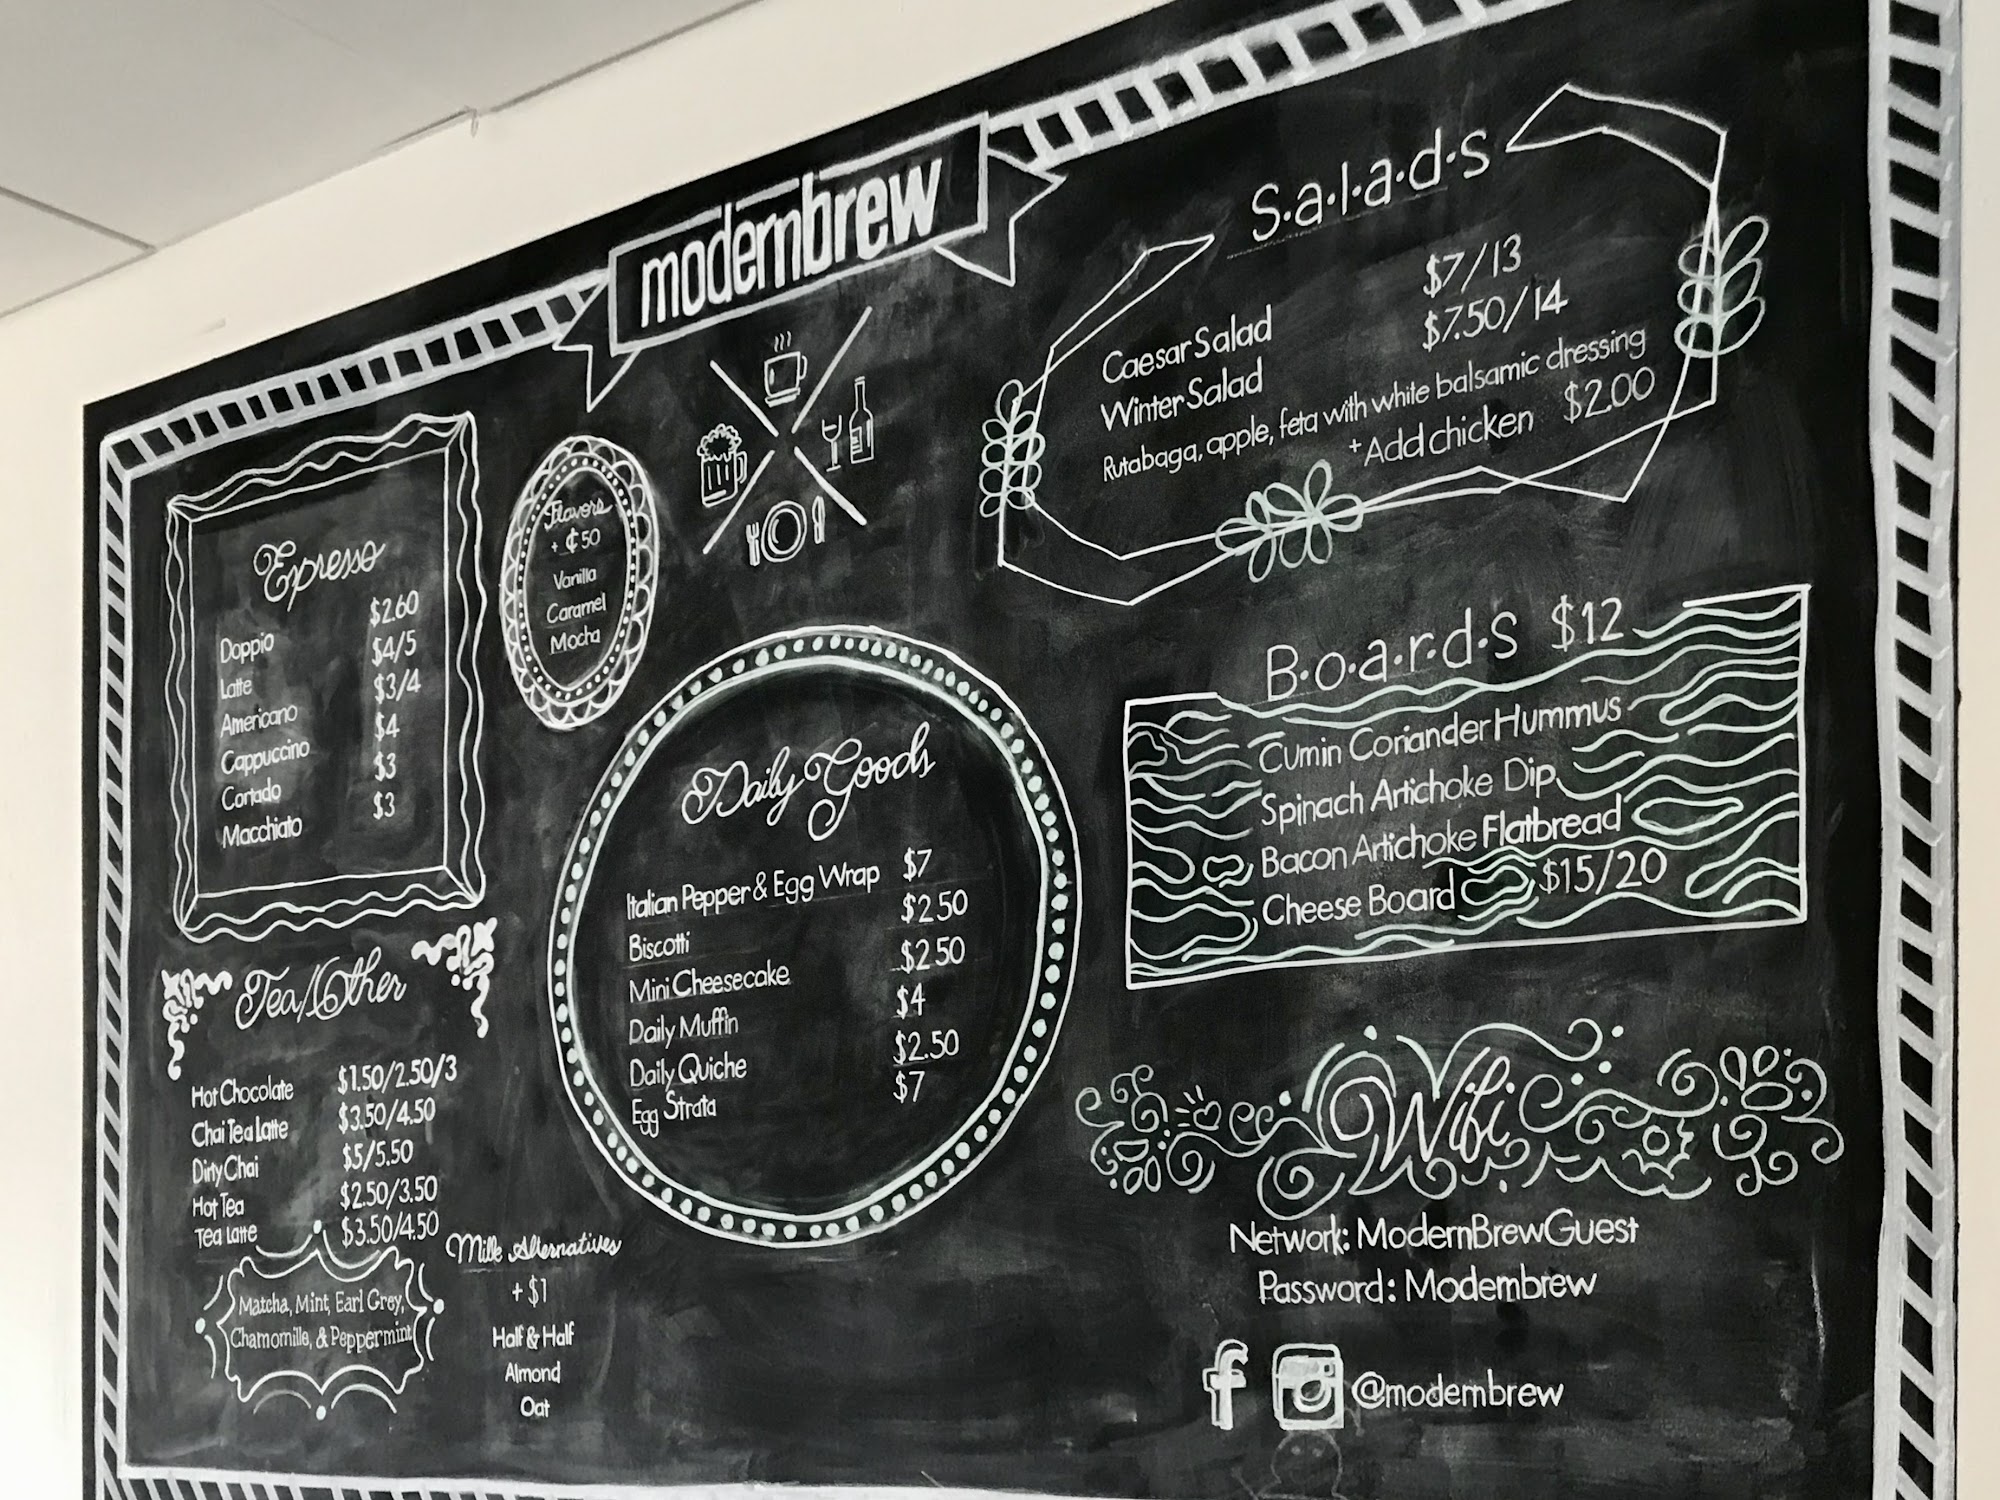 modernbrew
Espresso
Doppio $2.60
Latte $4/5
Americano $3/4
Cappuccino $4
Cortado $3
Macchiato $3
Flavors
+ ¢50
Vanilla
Caramel
Mocha
Tea/Other
Hot Chocolate $1.50/2.50/3
Chai Tea Latte $3.50/4.50
Dirty Chai $5/5.50
Hot Tea $2.50/3.50
Tea Latte $3.50/4.50
Matcha, Mint, Earl Grey,
Chamomille, & Peppermint
Milk Alternatives
+ $1
Half & Half
Almond
Oat
Daily Goods
Italian Pepper & Egg Wrap $7
Biscotti $2.50
Mini Cheesecake $2.50
Daily Muffin $4
Daily Quiche $2.50
Egg Strata $7
S•a•l•a•d•s
Caesar Salad $7/13
Winter Salad $7.50/14
Rutabaga, apple, feta with white balsamic dressing
+Add chicken $2.00
B•o•a•r•d•s $12
Cumin Coriander Hummus
Spinach Artichoke Dip
Bacon Artichoke Flatbread
Cheese Board $15/20
Wifi
Network: ModernBrewGuest
Password: Modernbrew
f @modernbrew